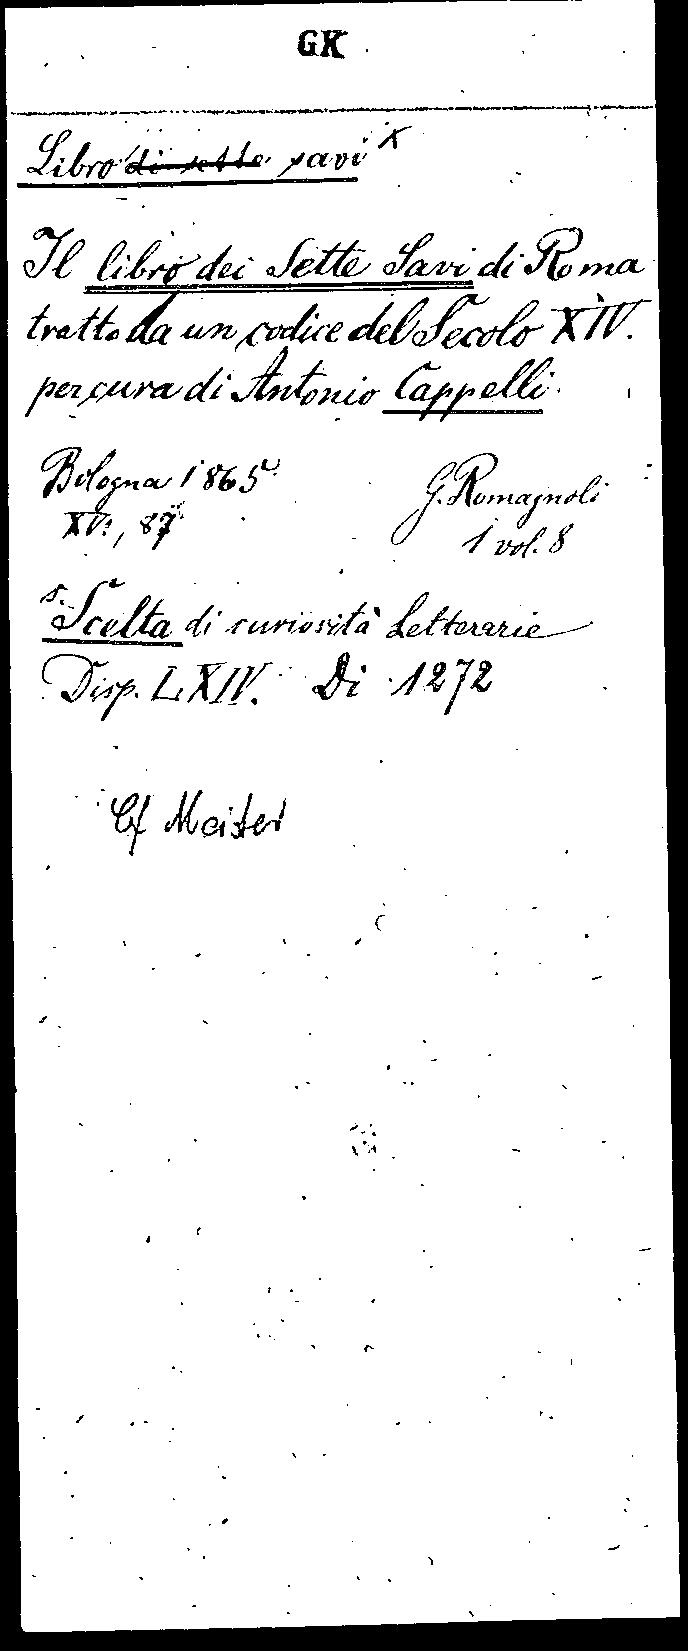 GK
Libro di sette savi x
Il libro dei Sette Savi di Roma
tratto da un codice del Secolo XIV.
per cura di Antonio Cappelli.
Bologna 1865 G. Romagnoli
XV, 87 1 vol. 8
s. Scelta di curiosità Letterarie
Disp. LXIV. Di 1272
Cf Meister